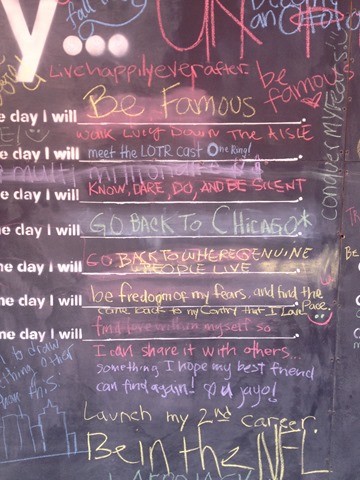 y...
Live happily ever after
be famous
e day I will Be Famous
Walk Lucy Down The AISLE
e day I will meet the LOTR cast One Ring!
e day I will KNOW, DARE, DO, AND BE SILENT
ne day I will GO BACK TO CHICAGO*
ne day I will GO BACK TO WHERE GENUINE
PEOPLE LIVE
ne day I will be fredom of my fears, and find the
Peace.
come back to my Contry that I Love
me day I will find love within myself so
I can share it with others...
Something I hope my best friend
can find again! U jayo!
Launch my 2nd career.
Be in the NFL
conquer my FEARS!
Be
to draw
this